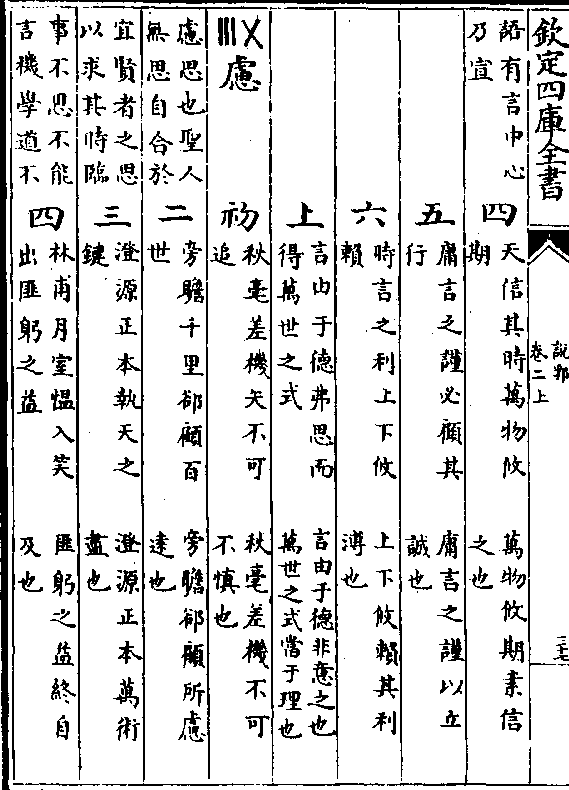 欽定四庫全書
說郛
卷二上
三七
語有言中心
乃宣
四
天信其時萬物攸
期
萬物攸期素信
之也
五
庸言之謹必顧其
行
庸言之謹以立
誠也
六
時言之利上下攸
賴
上下攸賴其利
溥也
上
言由于德弗思而
得萬世之式
言由于德非意之也
萬世之式當于理也
慮
慮思也聖人
無思自合於
宜賢者之思
以求其時臨
事不思不能
言機學道不
初
秋毫差機矢不可
追
秋毫差機不可
不慎也
二
旁瞻千里郤顧百
世
旁瞻郤顧所慮
逺也
三
澄源正本執天之
鍵
澄源正本萬術
盡也
四
林甫月室愠入笑
出匪躬之益
匪躬之益終自
及也